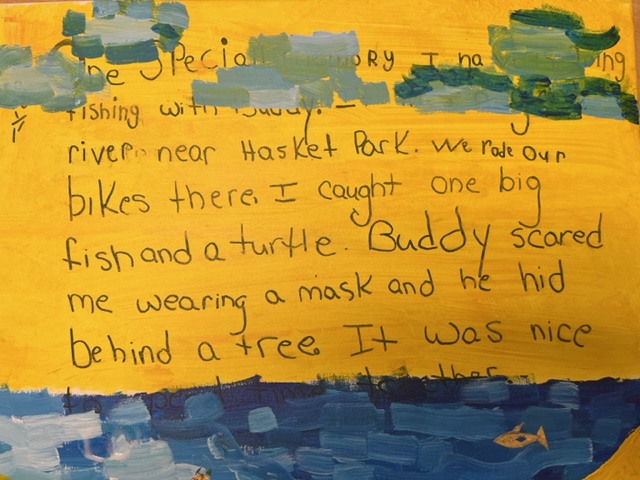 I
fishing with
river near Hasket Park. We rode our
bikes there. I caught one big
fish and a turtle. Buddy scared
me wearing a mask and he hid
behind a tree. It was nice